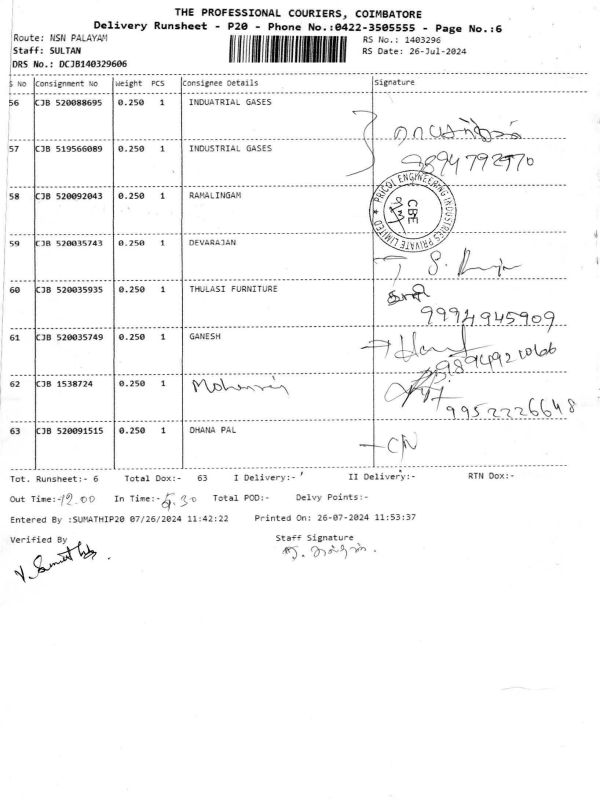 THE PROFESSIONAL COURIERS, COIMBATORE
Delivery Runsheet - P20 - Phone No.:0422-3505555 - Page No.:6
Route: NSN PALAYAM RS No.: 1403296
Staff: SULTAN RS Date: 26-Jul-2024
DRS No.: DCJB140329606
S No Consignment No Weight PCS Consignee Details Signature
56 CJB 520088695 0.250 1 INDUATRIAL GASES
57 CJB 519566089 0.250 1 INDUSTRIAL GASES
9894792770
58 CJB 520092043 0.250 1 RAMALINGAM
PRICOL ENGINEERING INDUSTRIES PRIVATE LIMITED
CBE
59 CJB 520035743 0.250 1 DEVARAJAN
60 CJB 520035935 0.250 1 THULASI FURNITURE
9994945909
61 CJB 520035749 0.250 1 GANESH
9894921066
62 CJB 1538724 0.250 1 Mohanraj
9952226648
63 CJB 520091515 0.250 1 DHANA PAL
CN
Tot. Runsheet:- 6 Total Dox:- 63 I Delivery:- II Delivery:- RTN Dox:-
Out Time:-12.00 In Time:-5.30 Total POD:- Delvy Points:-
Entered By :SUMATHIP20 07/26/2024 11:42:22 Printed On: 26-07-2024 11:53:37
Verified By Staff Signature